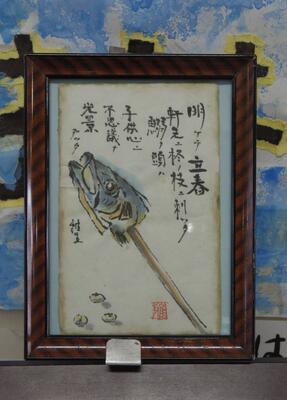 明ケテ立春
軒先ニ柊枝ニ刺シタ
鰯ノ頭ハ
子供心ニ
不思議ナ
光景
デアッタ
は